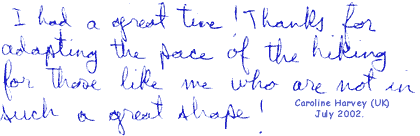 I had a great time! Thanks for
adapting the pace of the hiking
for those like me who are not in
such a great shape!
Caroline Harvey (UK)
July 2002.